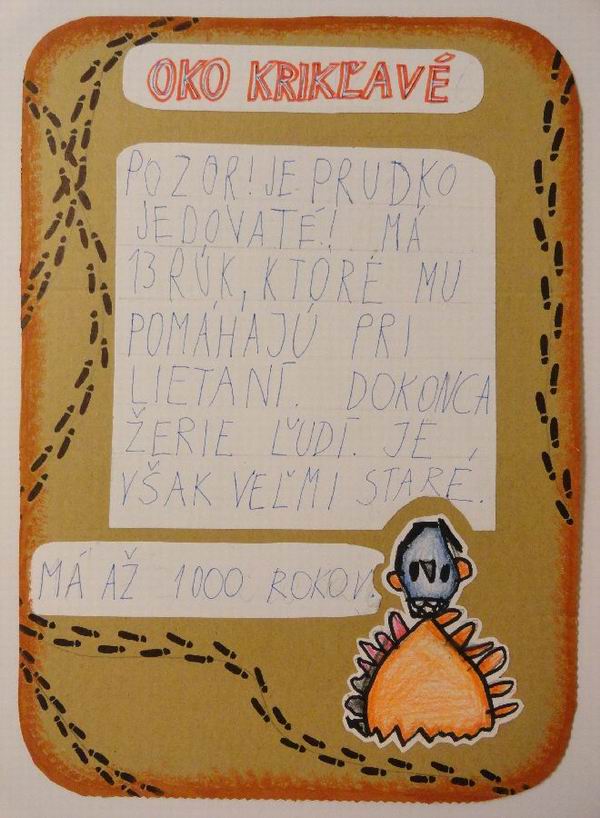 OKO KRIKĽAVÉ
POZOR! JE PRUDKO
JEDOVATÉ! MÁ
13 RÚK, KTORÉ MU
POMÁHAJÚ PRI
LIETANÍ. DOKONCA
ŽERIE ĽUDÍ. JE
VŠAK VEĽMI STARÉ.
MÁ AŽ 1000 ROKOV.